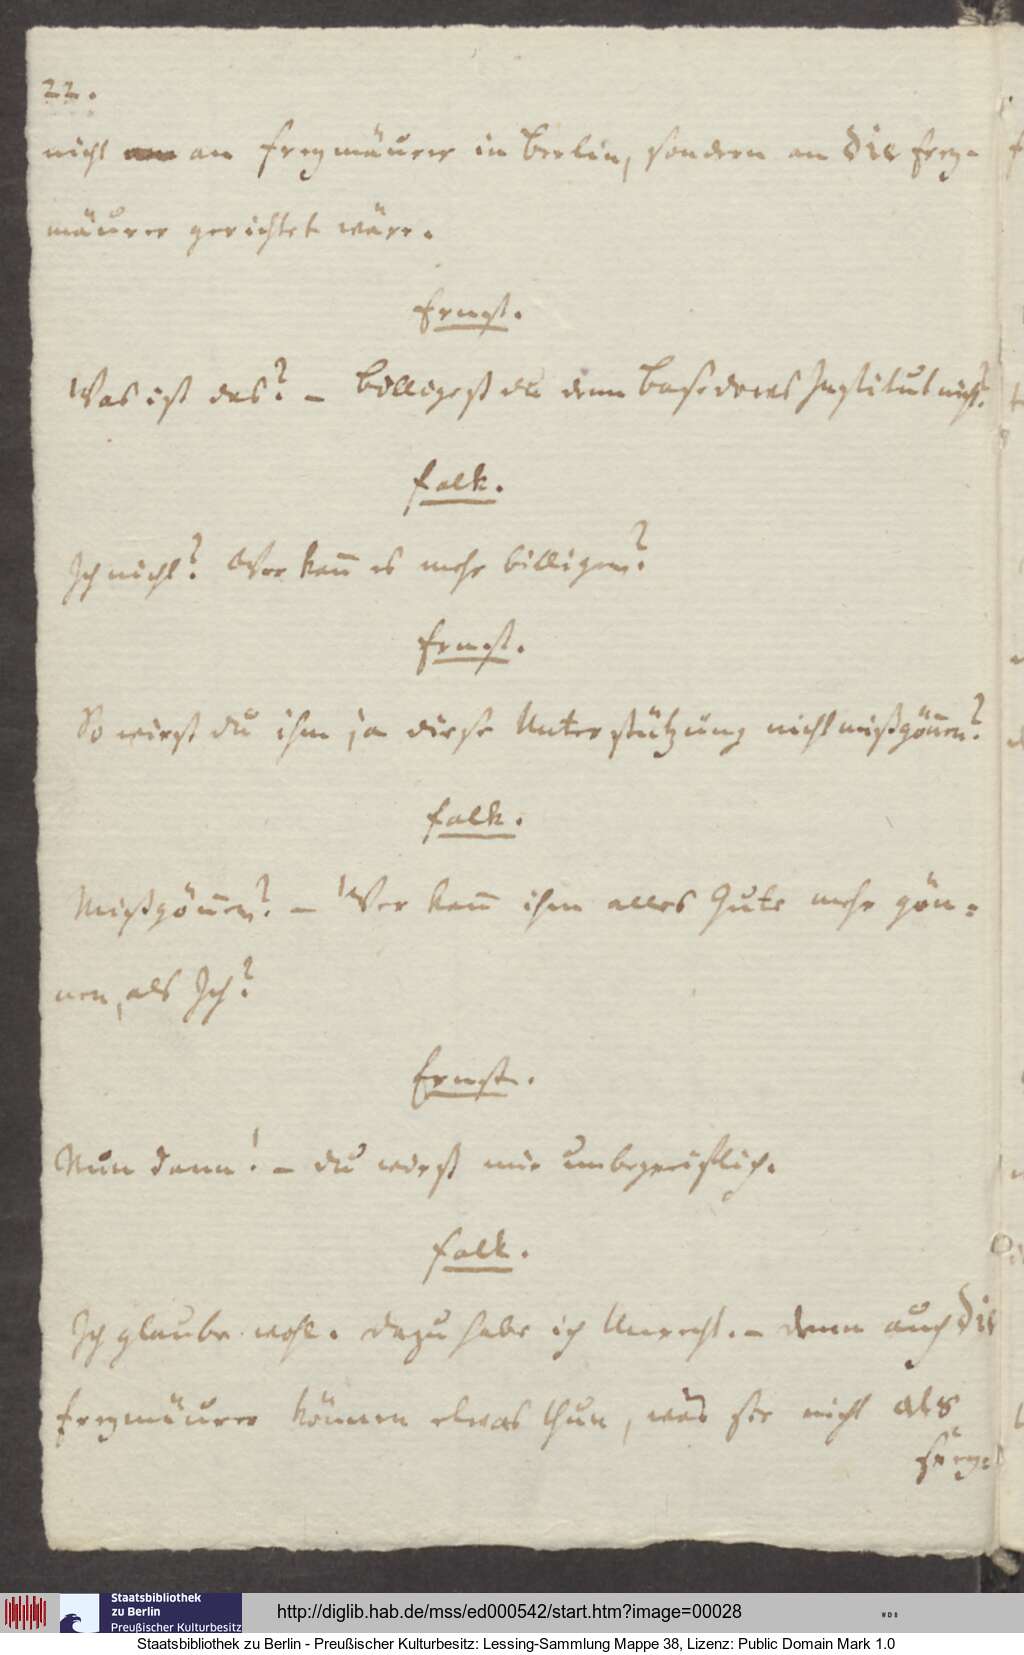 22.
nicht an an Freymäurer in Berlin, sondern an die Frey-
mäurer gerichtet wäre.
Ernst.
Was ist das? – Billigest du denn Basedows Institut nicht?
Falk.
Ich nicht? Wer kann es mehr billigen?
Ernst.
So wirst du ihm ja diese Unterstützung nicht mißgönnen?
Falk.
Mißgönnen? – Wer kann ihm alles Gute mehr gön-
nen, als Ich?
Ernst.
Nun dann! – du wirst mir unbegreiflich.
Falk.
Ich glaube wohl. dazu habe ich Unrecht. – denn auch die
Freymäurer können etwas thun, was sie nicht als
Frey-
http://diglib.hab.de/mss/ed000542/start.htm?image=00028
Staatsbibliothek
zu Berlin
Preußischer Kulturbesitz
Staatsbibliothek zu Berlin - Preußischer Kulturbesitz: Lessing-Sammlung Mappe 38, Lizenz: Public Domain Mark 1.0